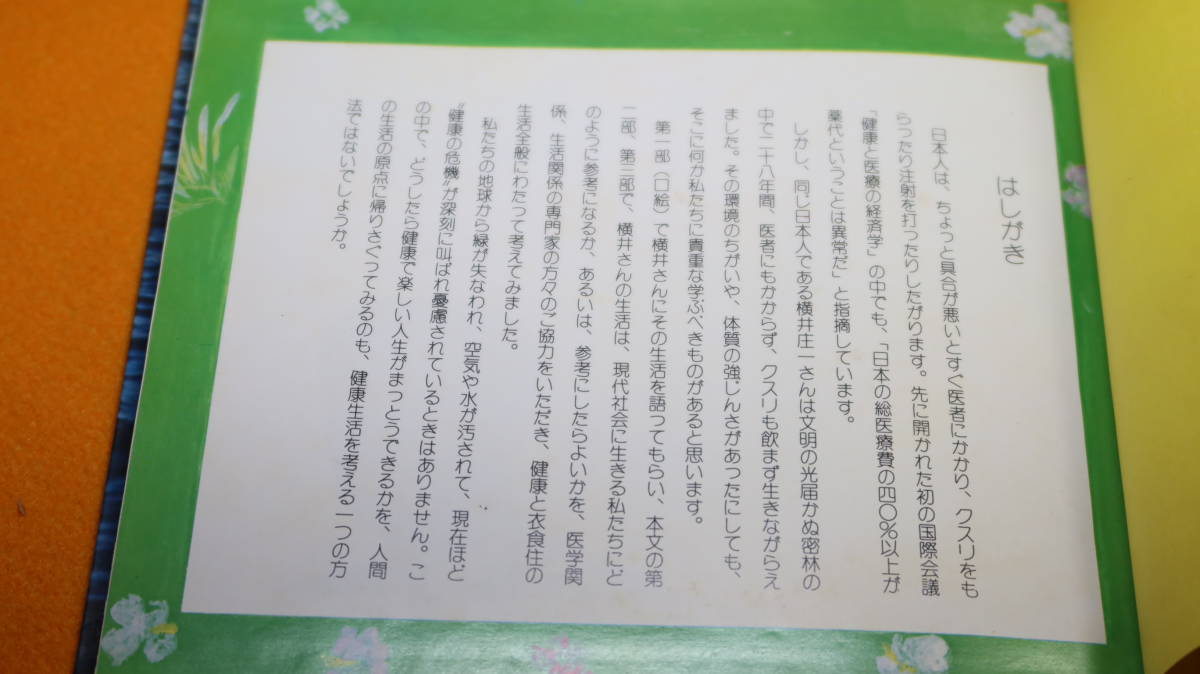 はしがき
日本人は、ちょっと具合が悪いとすぐ医者にかかり、クスリをも
らったり注射を打ったりしたがります。先に開かれた初の国際会議
「健康と医療の経済学」の中でも、「日本の総医療費の四〇%以上が
薬代ということは異常だ」と指摘しています。
しかし、同じ日本人である横井庄一さんは文明の光届かぬ密林の
中で二十八年間、医者にもかからず、クスリも飲まず生きながらえ
ました。その環境のちがいや、体質の強じんさがあったにしても、
そこに何か私たちに貴重な学ぶべきものがあると思います。
第一部（口絵）で横井さんにその生活を語ってもらい、本文の第
二部、第三部で、横井さんの生活は、現代社会に生きる私たちにど
のように参考になるか、あるいは、参考にしたらよいかを、医学関
係、生活関係の専門家の方々のご協力をいただき、健康と衣食住の
生活全般にわたって考えてみました。
私たちの地球から緑が失なわれ、空気や水が汚されて、現在ほど
“健康の危機”が深刻に叫ばれ憂慮されているときはありません。こ
の中で、どうしたら健康で楽しい人生がまっとうできるかを、人間
の生活の原点に帰りさぐってみるのも、健康生活を考える一つの方
法ではないでしょうか。